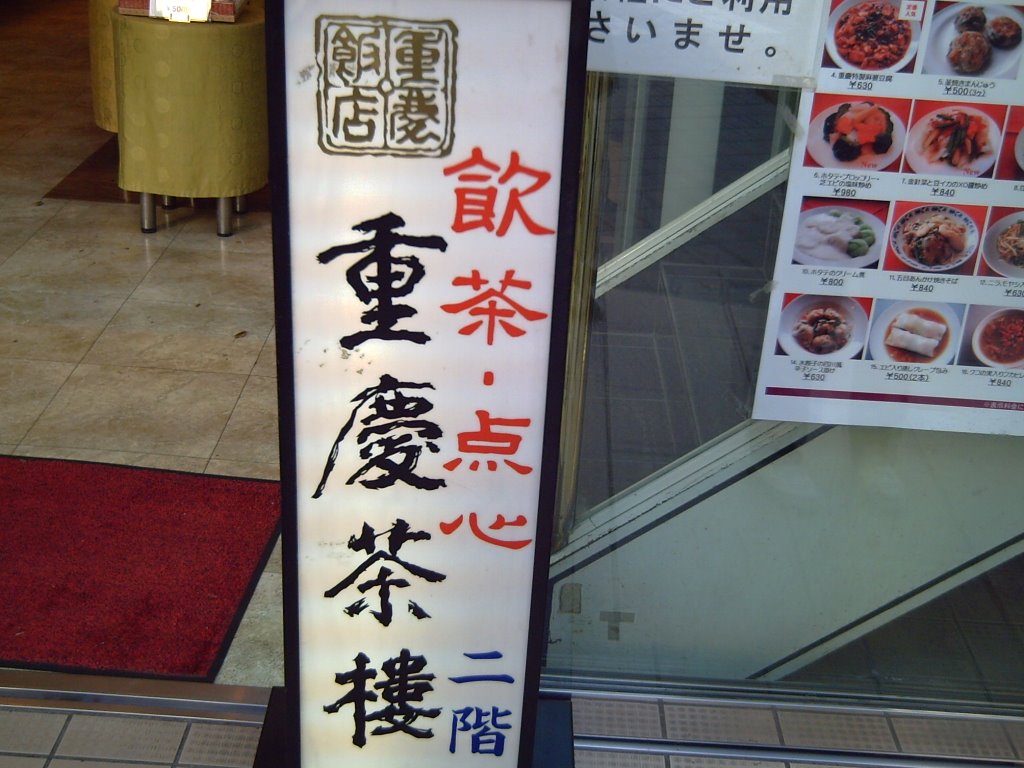 重慶
飯店
飲茶・点心
重慶茶樓
二階
さいませ。
4. 重慶特製麻婆豆腐
¥630
5. 釜焼きまんじゅう
¥500(3ヶ)
New
6. ホタテ・ブロッコリー・
芝エビの塩味炒め
¥980
New
7. 金針菜と豆イカのXO醤炒め
¥840
10. ホタテのクリーム煮
¥800
11. 五目あんかけ焼きそば
¥840
¥630
14. 水餃子の四川風
辛子ソース掛け
¥630
15. エビ入り蒸しクレープ包み
¥500(2本)
¥840